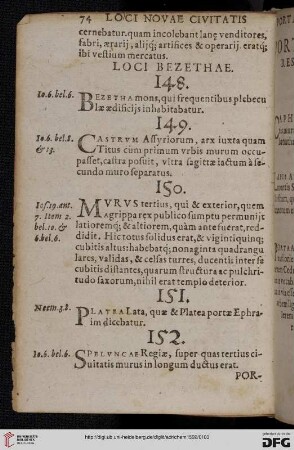 74 LOCI NOVAE CIVITATIS
cernebatur. quam incolebant lanę venditores,
fabri, ærarij, alijq; artifices & operarij. eratq;
ibi vestium mercatus.
LOCI BEZETHAE.
148.
Io.6.bel.6. BEZETHA mons, qui frequentibus plebecu
læ ædificijs inhabitabatur.
149.
Io.6.bel.8.
& 13. CASTRVM Assyriorum, arx iuxta quam
Titus cùm primum vrbis murum occu-
passet, castra posuit, vltra sagittæ iactum à se
cundo muro separatus.
150.
Ios.19.ant.
7. Item 2.
bel.10. &
6.bel.6. MVRVS tertius, qui & exterior, quem
Agrippa rex publico sumptu permunijt
latioremq; & altiorem, quàm ante fuerat, red-
didit. Hic totus solidus erat, & vigintiquinq;
cubitis altus: habebatq; nonaginta quadrangu
lares, validas, & celsas turres, ducentis inter se
cubitis distantes, quarum structura ac pulchri-
tudo saxorum, nihil erat templo deterior.
151.
Neem.3.8. PLATEA Lata, quæ & Platea portæ Ephra
im dicebatur.
152.
Io.6.bel.6. SPELVNCAE Regiæ, super quas tertius ci-
uitatis murus in longum ductus erat.
POR-